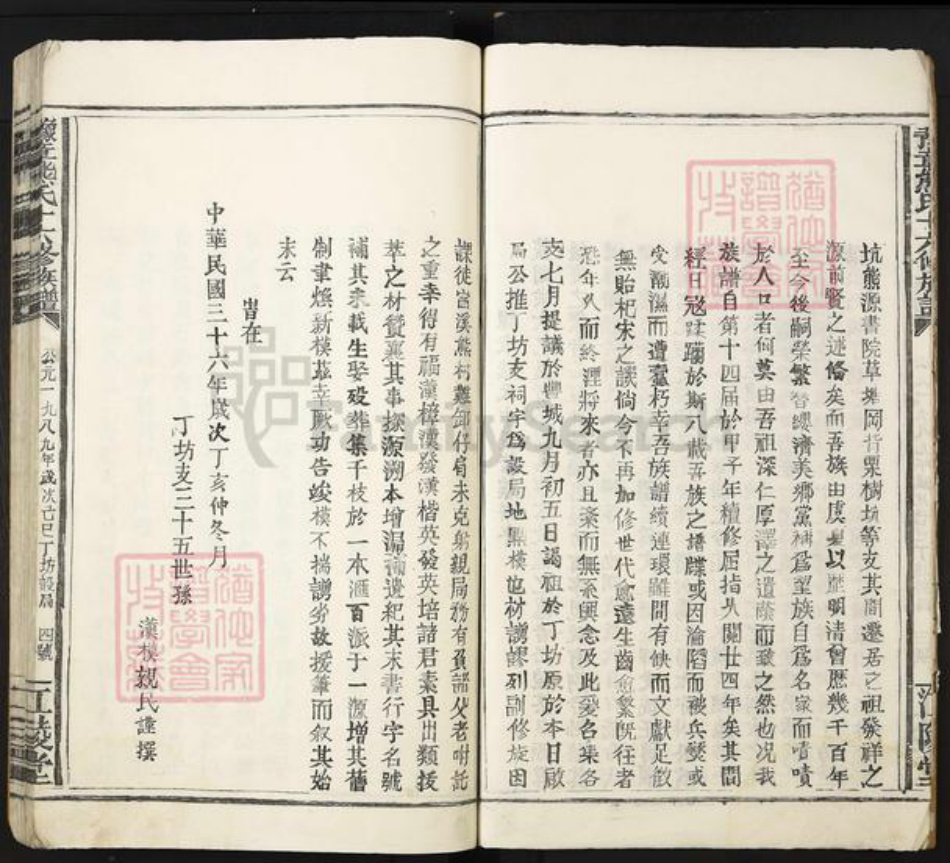 坑熊源書院草堆岡背栗樹坑等支其間遷居之祖發祥之
源前賢之述備矣而吾族由虞夏以歷明清曾歷幾千百年
至今後嗣榮繁簪纓濟美鄉黨稱為望族自為名家而嘖嘖
於人口者何莫由吾祖深仁厚澤之遺蔭而致之然也况我
族譜自第十四届於甲子年續修屈指久閱廿四年矣其間
經日寇蹂躪於斯八載吾族之譜牒或因淪陷而被兵燹或
受潮濕而遭蠹朽幸吾族譜續連環雖間有缺而文獻足徵
無貽杞宋之譏倘今不再加修世代愈遠生齒愈繁既往者
恐年久而終湮將來者亦且紊而無系興念及此爰召集各
支七月提議於豐城九月初五日謁祖於丁坊原於本日啟
局公推丁坊支祠宇為設局地點模也材謭謬列副修旋因
課徒富溪熊村難卸仔肩未克躬親局務有負諸父老咐託
之重幸得有福漢樟漢發漢楷英發英培諸君素具出類拔
萃之材贊襄其事探源溯本增漏補遺紀其末書行字名號
補其未載生娶殁葬集千枝於一本滙百派于一源增其舊
制事煥新模兹幸厥功告竣模不揣謭劣故援筆而叙其始
末云
旹在
中華民國三十六年歲次丁亥仲冬月
丁坊支三十五世孫
漢模親民謹撰
公元一九八九年歲次己巳丁坊設局
四號
江陵堂
FamilySearch